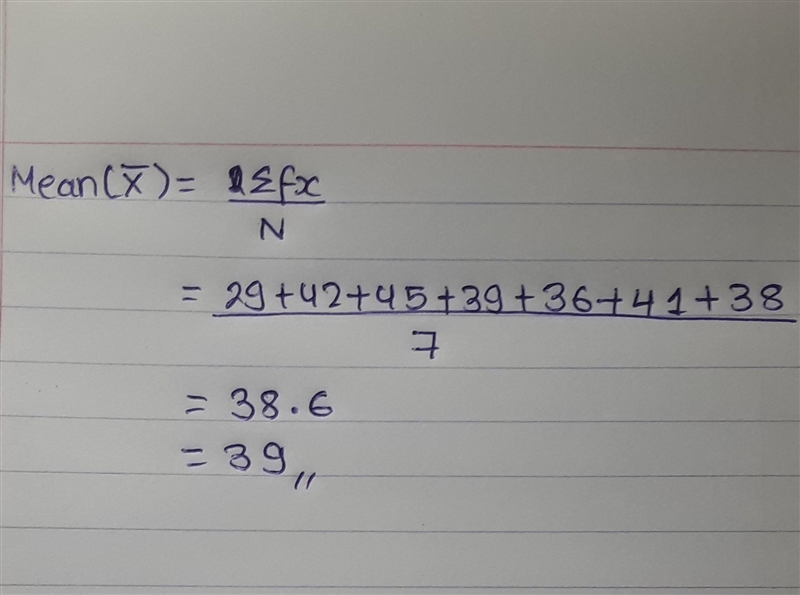 Mean(x̄) = Σfx
N
= 29+42+45+39+36+41+38
7
= 38.6
= 39,,